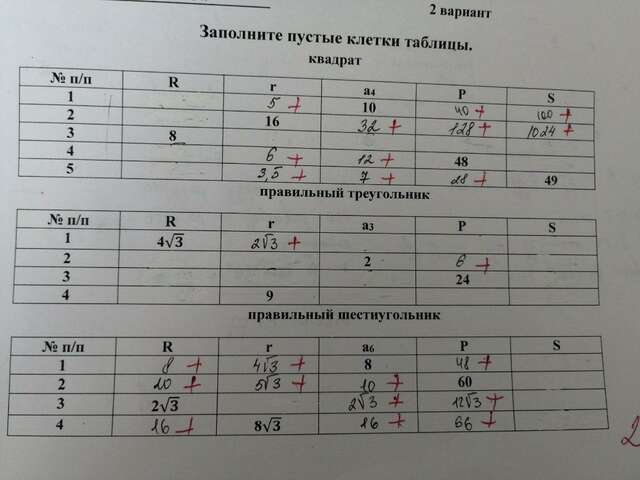 2 вариант
Заполните пустые клетки таблицы.
квадрат
№ п/п R r a₄ P S
1 5 + 10 40 + 100 +
2 16 32 + 128 + 1024 +
3 8
4 6 + 12 + 48
5 3,5 + 7 + 28 + 49
правильный треугольник
№ п/п R r a₃ P S
1 4√3 2√3 +
2 2 6 +
3 24
4 9
правильный шестиугольник
№ п/п R r a₆ P S
1 8 + 4√3 + 8 48 +
2 10 + 5√3 + 10 + 60
3 2√3 2√3 + 12√3 +
4 16 + 8√3 16 + 66 +
2